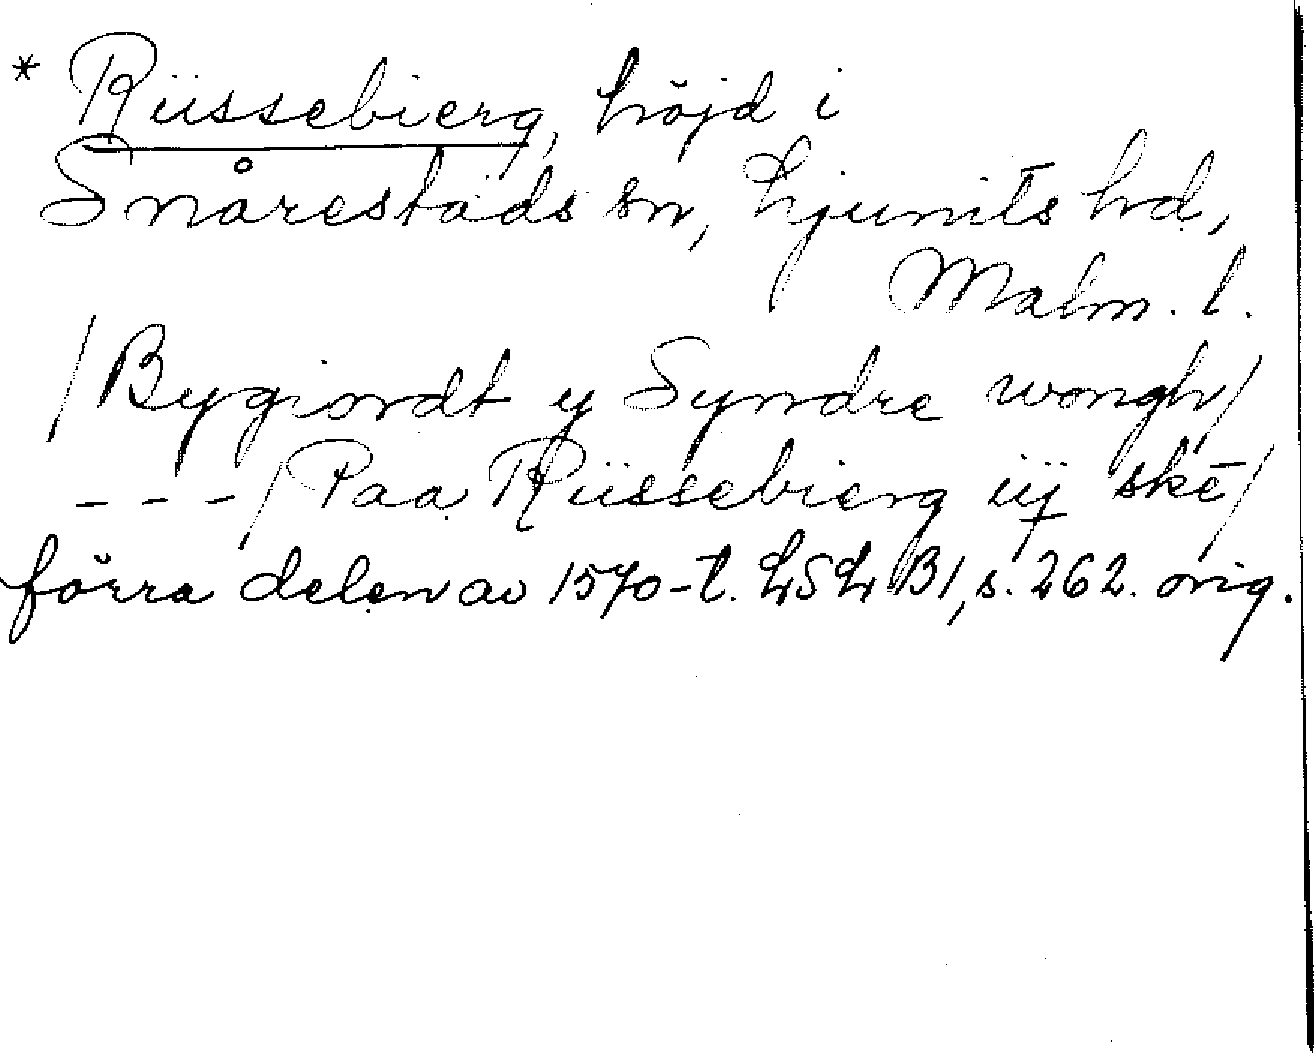 * Rüssebierg, höjd i
Snårestads sn, Ljunits hd,
Malm. l.
/Bygiordt y Syndre wongh/
- - -/Paa Rüssebierg iij skē/
förra delen av 1570-t. LSL B1, s. 262. orig.